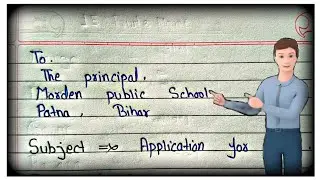 To.
The principal.
Morden public School
Patna, Bihar
Subject ⇒ Application for